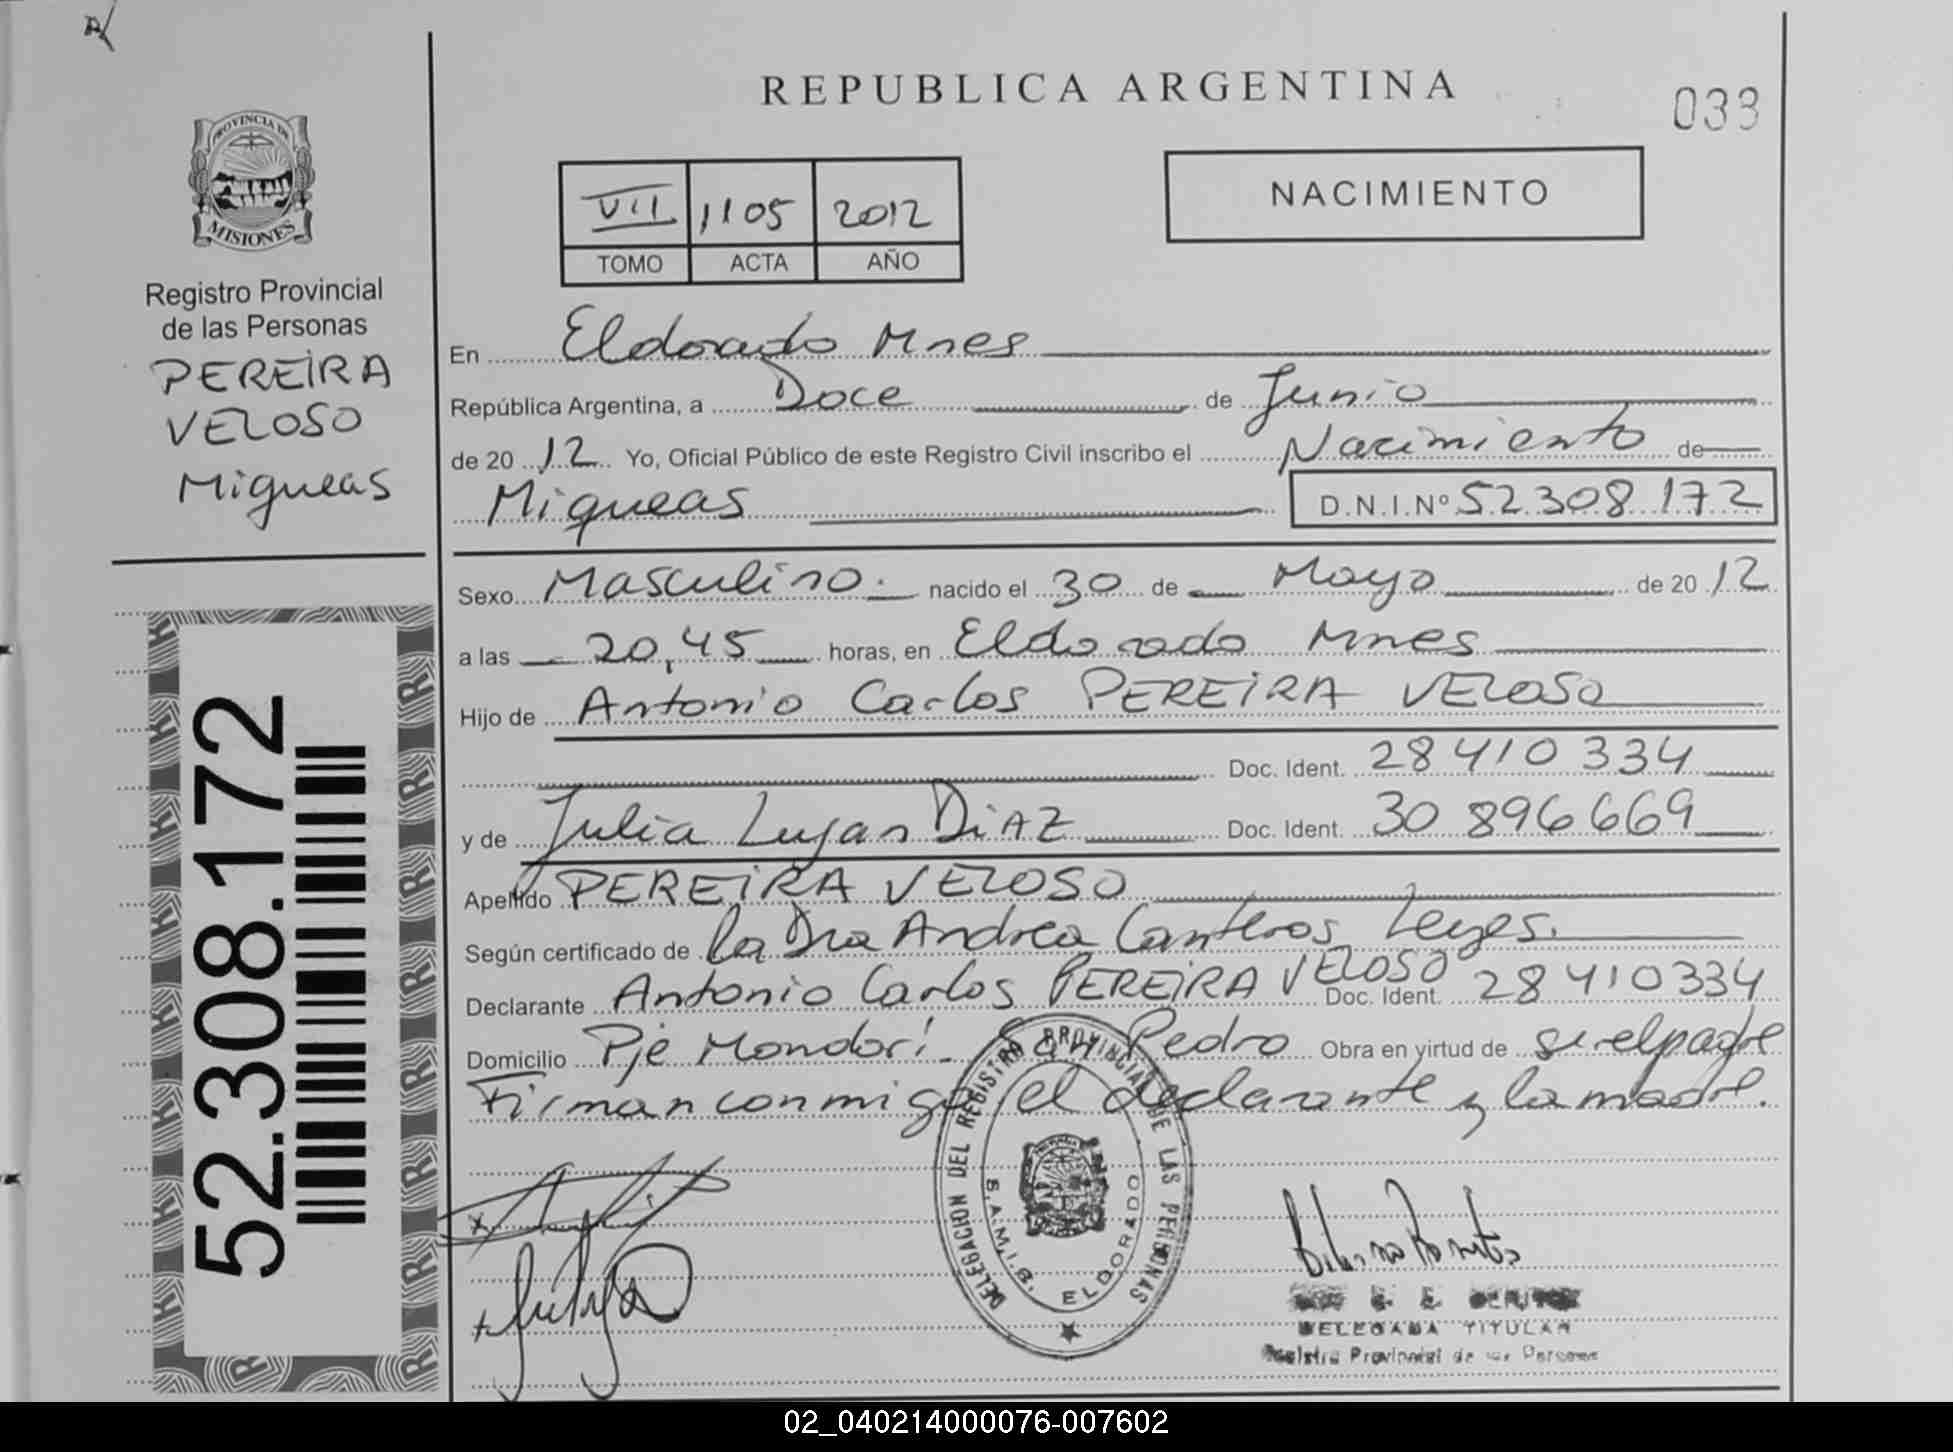 REPUBLICA ARGENTINA
033
PROVINCIA DE
MISIONES
Registro Provincial
de las Personas
PEREIRA
VELOSO
Miqueas
VII 1105 2012
TOMO ACTA AÑO
NACIMIENTO
En Eldorado Mnes
República Argentina, a Doce de Junio
de 20 12 Yo, Oficial Público de este Registro Civil inscribo el Nacimiento de
Miqueas D.N.I.Nº 52.308.172
Sexo Masculino. nacido el 30 de Mayo de 20 12
a las 20,45 horas, en Eldorado Mnes
Hijo de Antonio Carlos PEREIRA VELOSO
Doc. Ident. 28 410 334
y de Julia Lujan DIAZ Doc. Ident. 30 896 669
Apellido PEREIRA VELOSO
Según certificado de la Dra Andrea Canteros Leyes.
Declarante Antonio Carlos PEREIRA VELOSO Doc. Ident. 28 410334
Domicilio Pje Mondori - San Pedro Obra en virtud de ser el padre
Firman conmigo el declarante y la madre.
52.308.172
DELEGACION DEL REGISTRO PROVINCIAL DE LAS PERSONAS
S.A.M.I.B. ELDORADO
DELEGADA TITULAR
Registro Provincial de las Personas
02_040214000076-007602